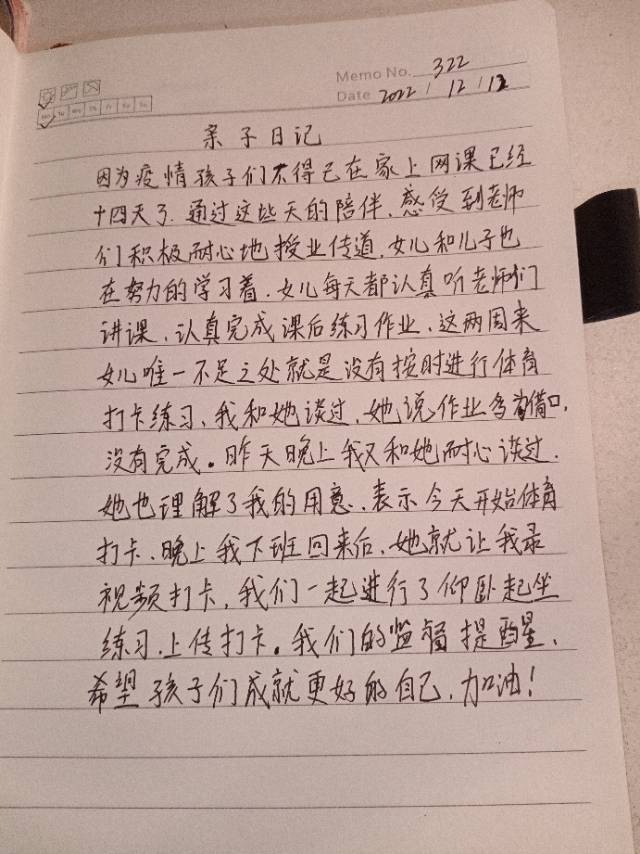 Memo No. 322
Date 2022 / 12 / 12
亲子日记
因为疫情孩子们不得已在家上网课已经
十四天了.通过这些天的陪伴,感受到老师
们积极耐心地授业传道,女儿和儿子也
在努力的学习着.女儿每天都认真听老师们
讲课,认真完成课后练习作业,这两周来
女儿唯一不足之处就是没有按时进行体育
打卡练习,我和她谈过,她说作业多为借口,
没有完成。昨天晚上我又和她耐心谈过.
她也理解了我的用意,表示今天开始体育
打卡.晚上我下班回来后,她就让我录
视频打卡,我们一起进行了仰卧起坐
练习,上传打卡。我们的监督提醒,
希望孩子们成就更好的自己,加油!